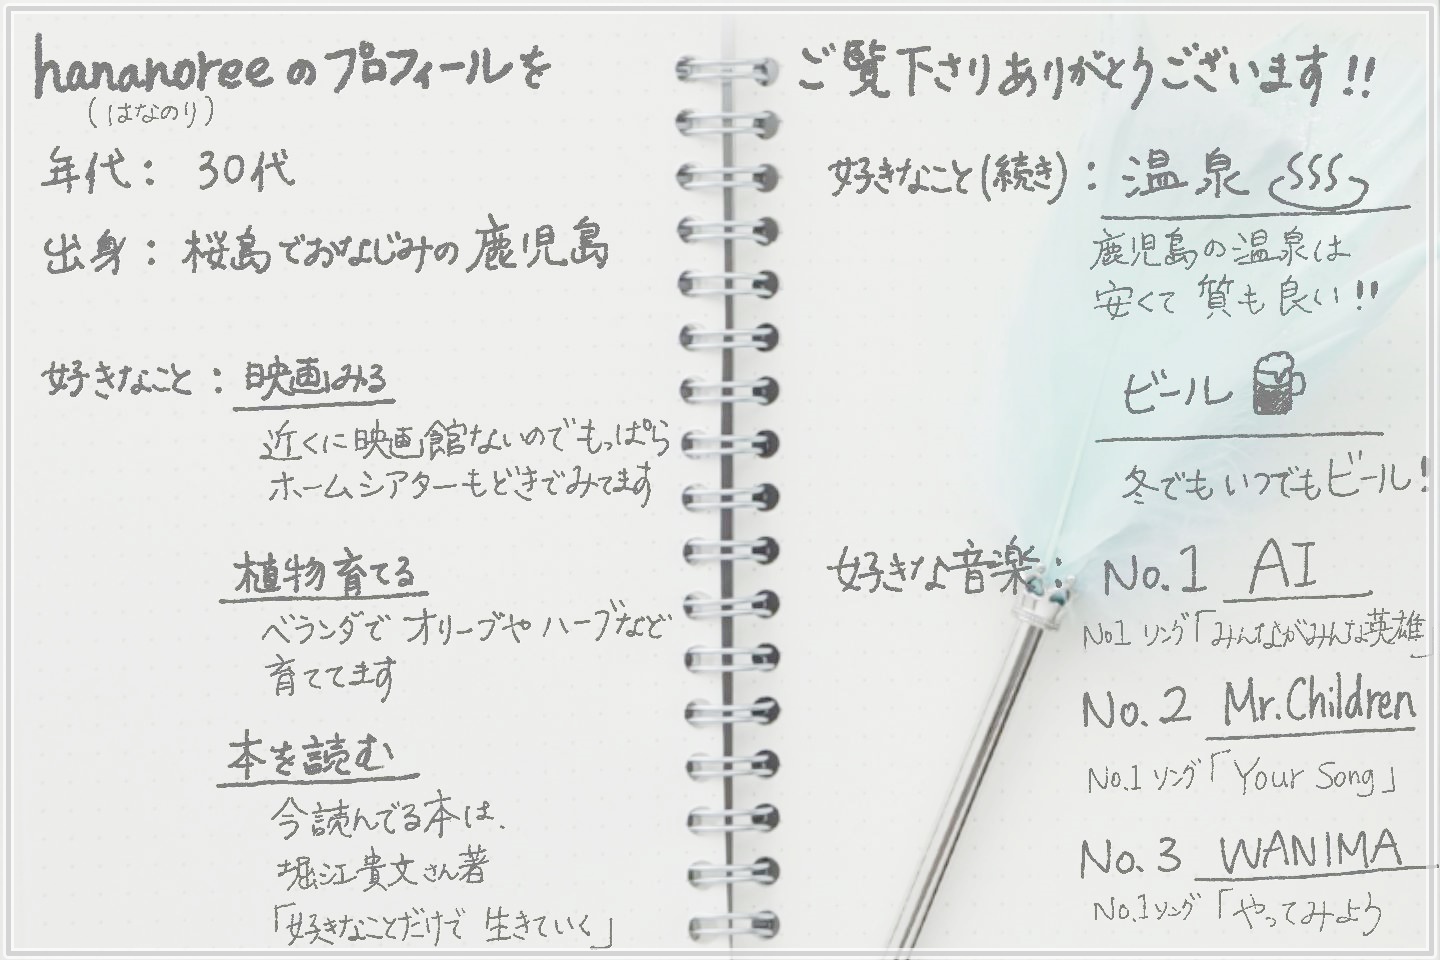 hananoreeのプロフィールを
(はなのり)
年代： 30代
出身：桜島でおなじみの鹿児島
好きなこと：映画みる
近くに映画館ないのでもっぱら
ホームシアターもどきでみてます
植物育てる
ベランダで オリーブや ハーブなど
育ててます
本を読む
今読んでる本は、
堀江貴文さん著
「好きなことだけで 生きていく」
ご覧下さりありがとうございます!!
好きなこと(続き)：温泉
鹿児島の温泉は
安くて 質も良い!!
ビール
冬でもいつでもビール!
好きな音楽： No.1 AI
No1 ソング「みんながみんな英雄」
No.2 Mr.Children
No.1 ソング「Your Song」
No.3 WANIMA
No.1ソング「やってみよう